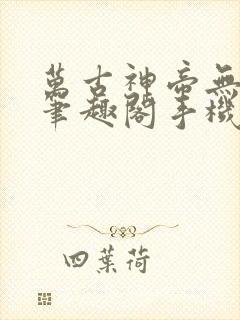 萬古神帝無
筆趣閣手機
四葉荷